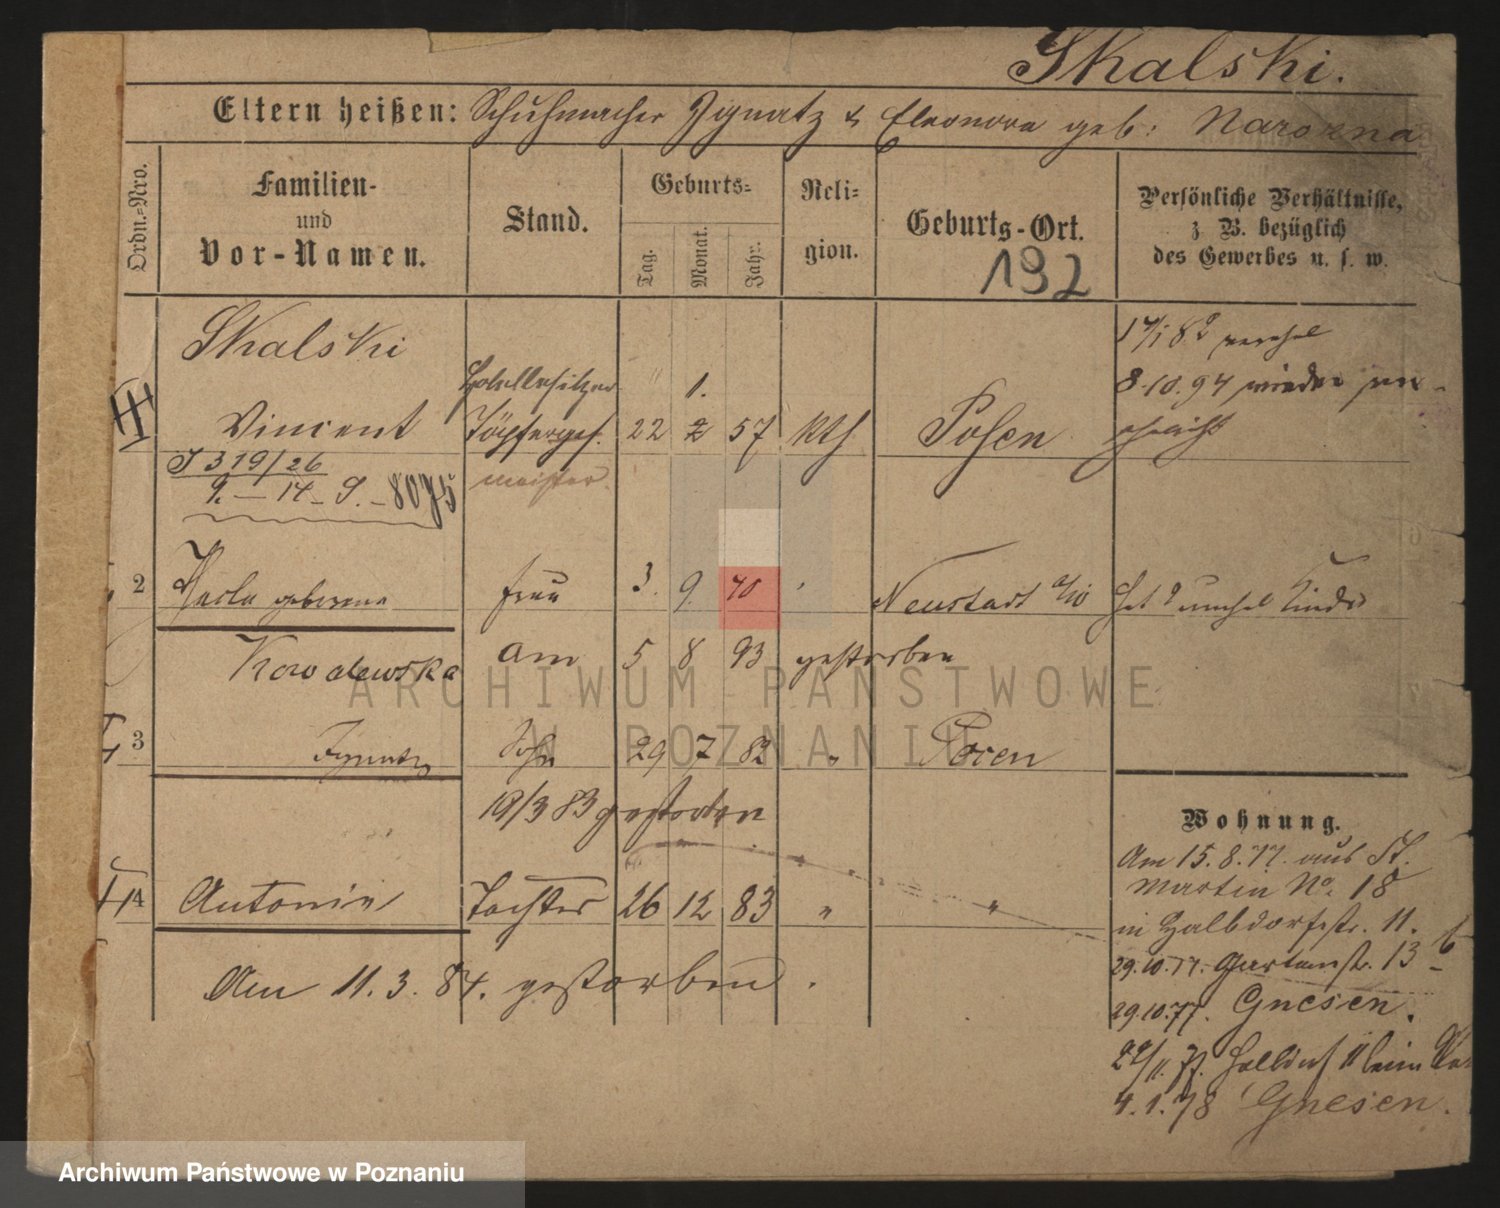 Skalski.
Eltern heißen: Schuhmacher Ignatz & Eleonora geb: Narozna
Ordn.=Nro.
Familien-
und
Vor-Namen.
Stand.
Geburts=
Tag.
Monat.
Jahr.
Reli=
gion.
Geburts-Ort.
192
Persönliche Verhältnisse,
z. B. bezüglich
des Gewerbes u. s. w.
Skalski
17/1 82
1.
8.10.94 wieder
Vincent Töpferges. 22 2 57 kth Posen
J 319/26
meister
9. – 14 – 9. – 8075
2 geborene Frau 3. 9. 70 Neustadt Hat Kinder
am 5 8 93 gestorben
3 Ignatz Sohn 29 7 82 " Posen
19/3 83 gestorben
Wohnung.
Am 15.8.77. aus St.
Martin No. 18
4 Antonie Tochter 26 12 83 " "
in Halbdorfstr. 11.
29.10.77. Gartenstr. 13 b
Am 11.3.84. gestorben.
29.10.77. Gnesen.
22/11.77. Halbdorf 11 beim
4.1.78 Gnesen.
ARCHIWUM PAŃSTWOWE
W POZNANIU
Archiwum Państwowe w Poznaniu